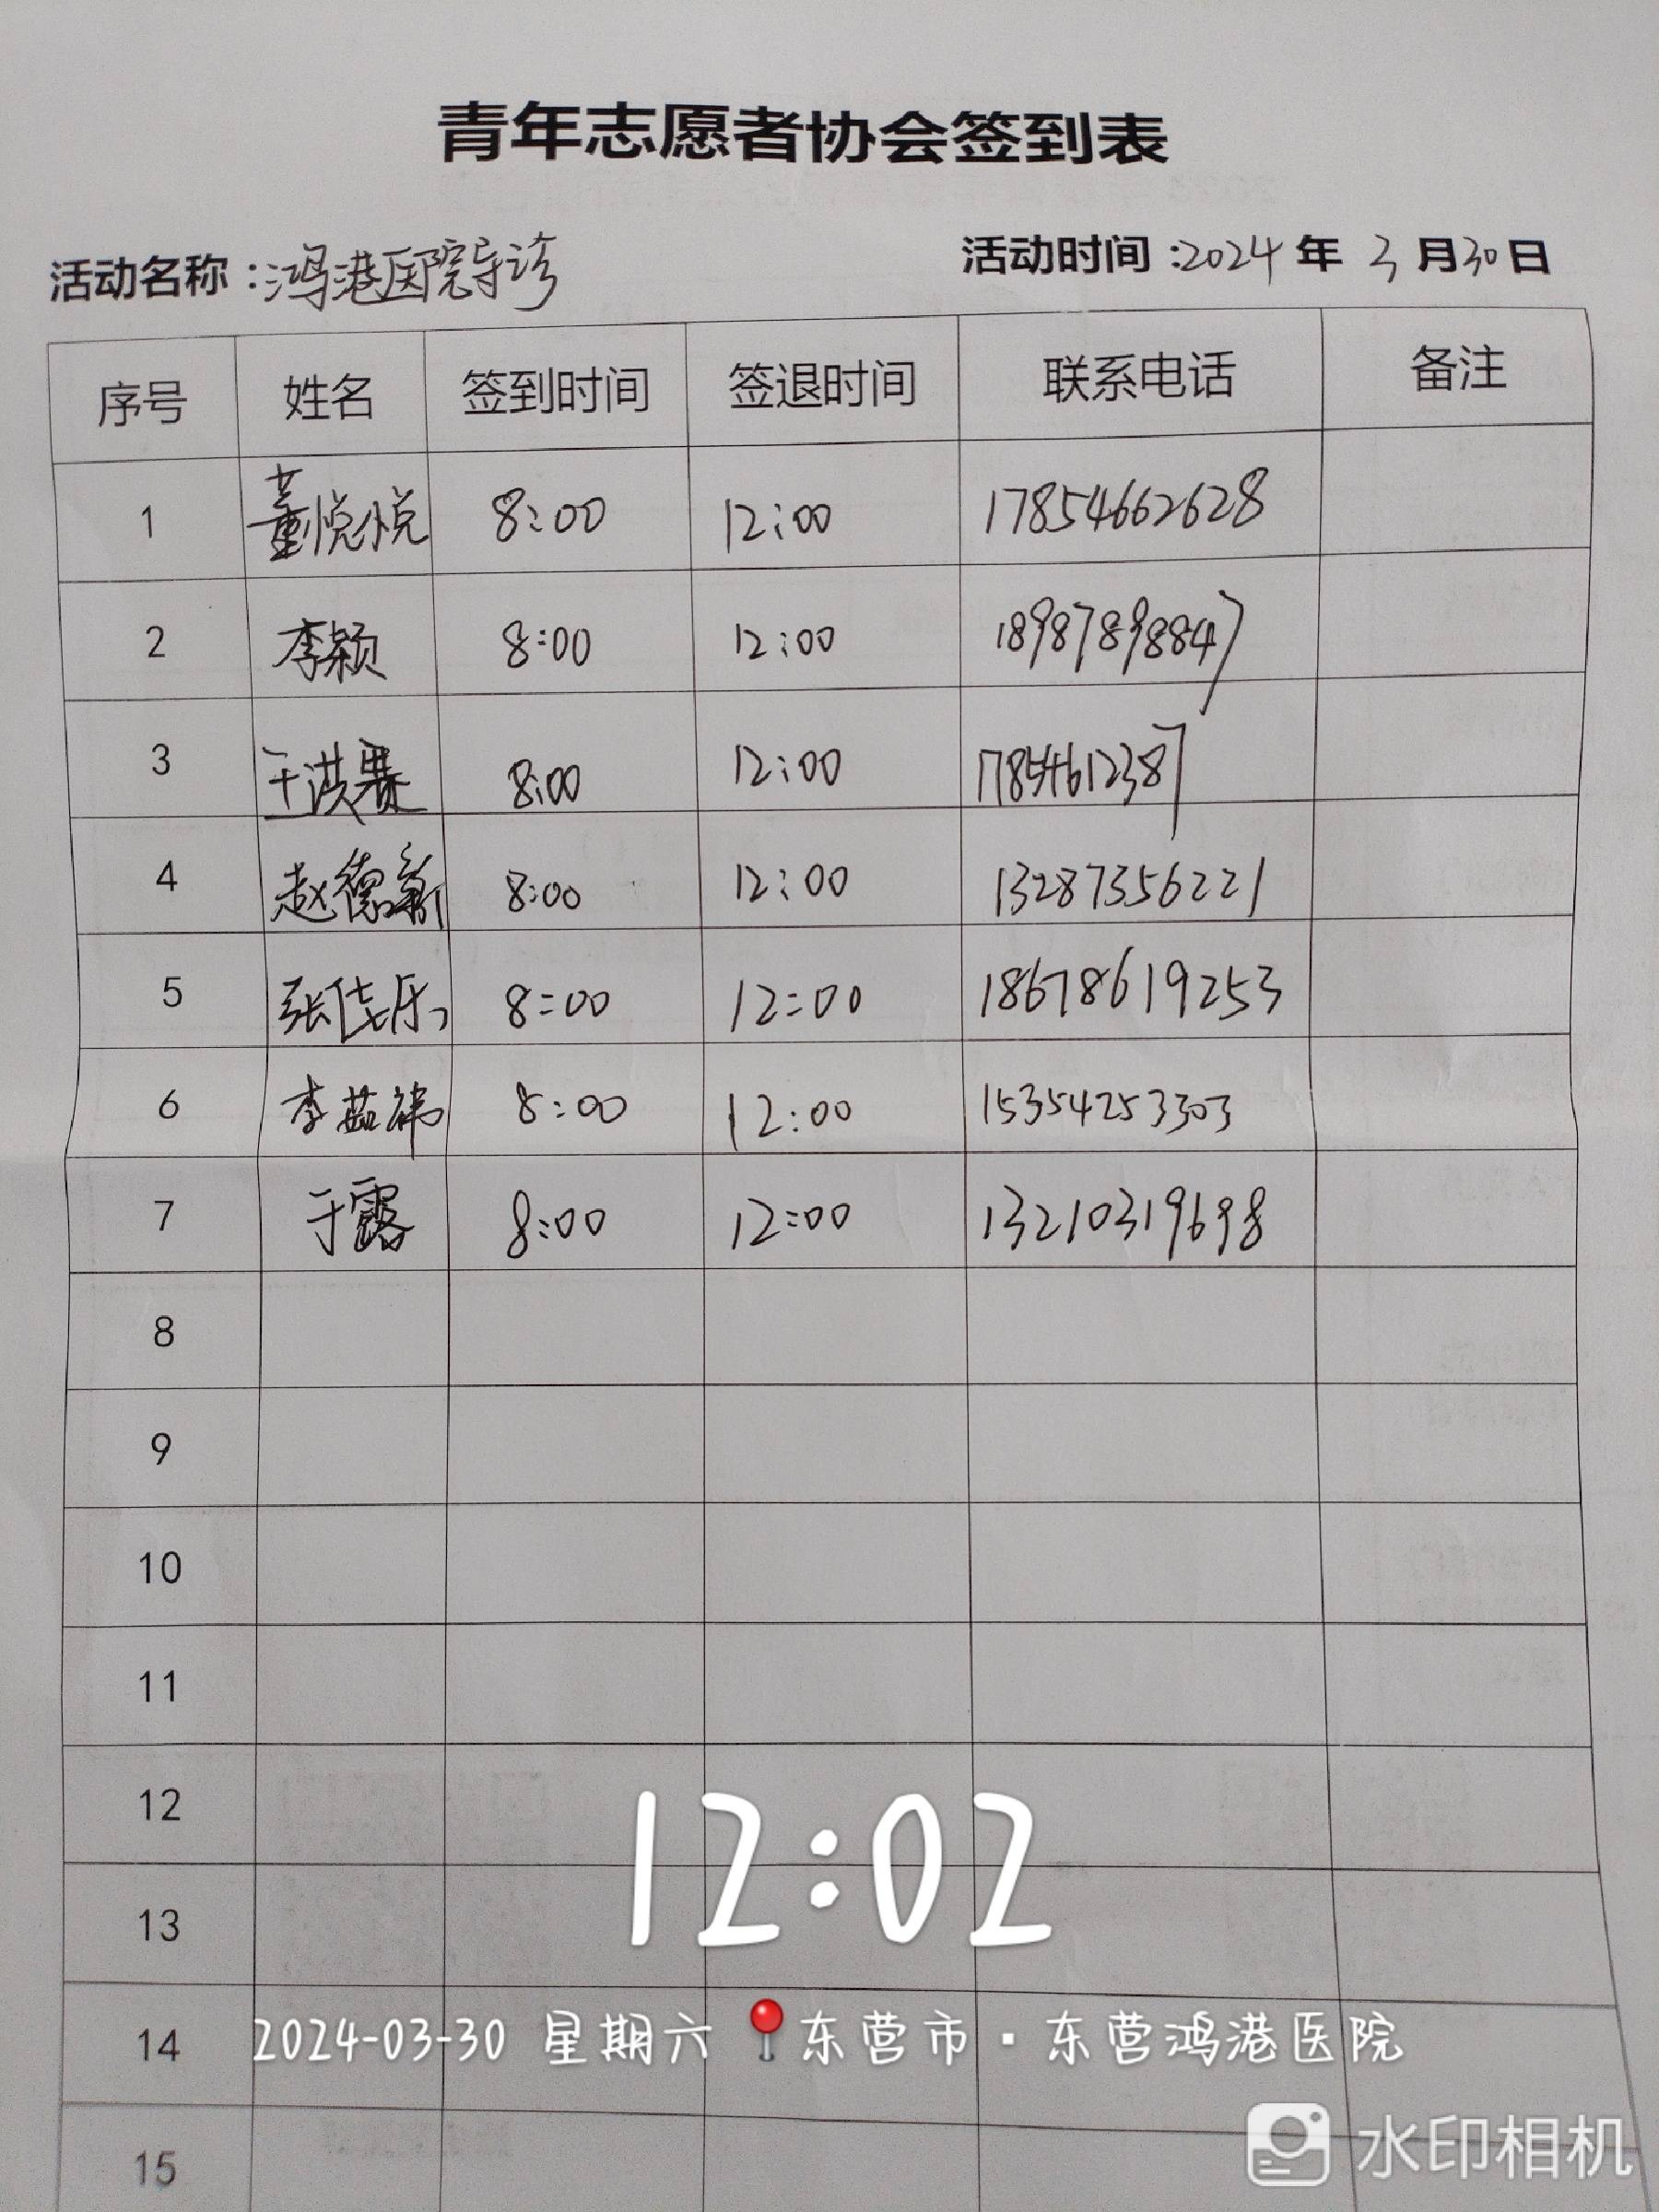 青年志愿者协会签到表
活动名称:鸿港医院导诊 活动时间:2024年3月30日
序号 姓名 签到时间 签退时间 联系电话 备注
1 董悦悦 8:00 12:00 17854662628
2 李颖 8:00 12:00 18987898847
3 王洪 8:00 12:00 17854612387
4 赵德新 8:00 12:00 13287356221
5 张佳乐 8:00 12:00 18678619253
6 李茹祎 8:00 12:00 15354253303
7 于露 8:00 12:00 13210319698
8
9
10
11
12
12:02
13
14
2024-03-30 星期六 东营市·东营鸿港医院
15
水印相机